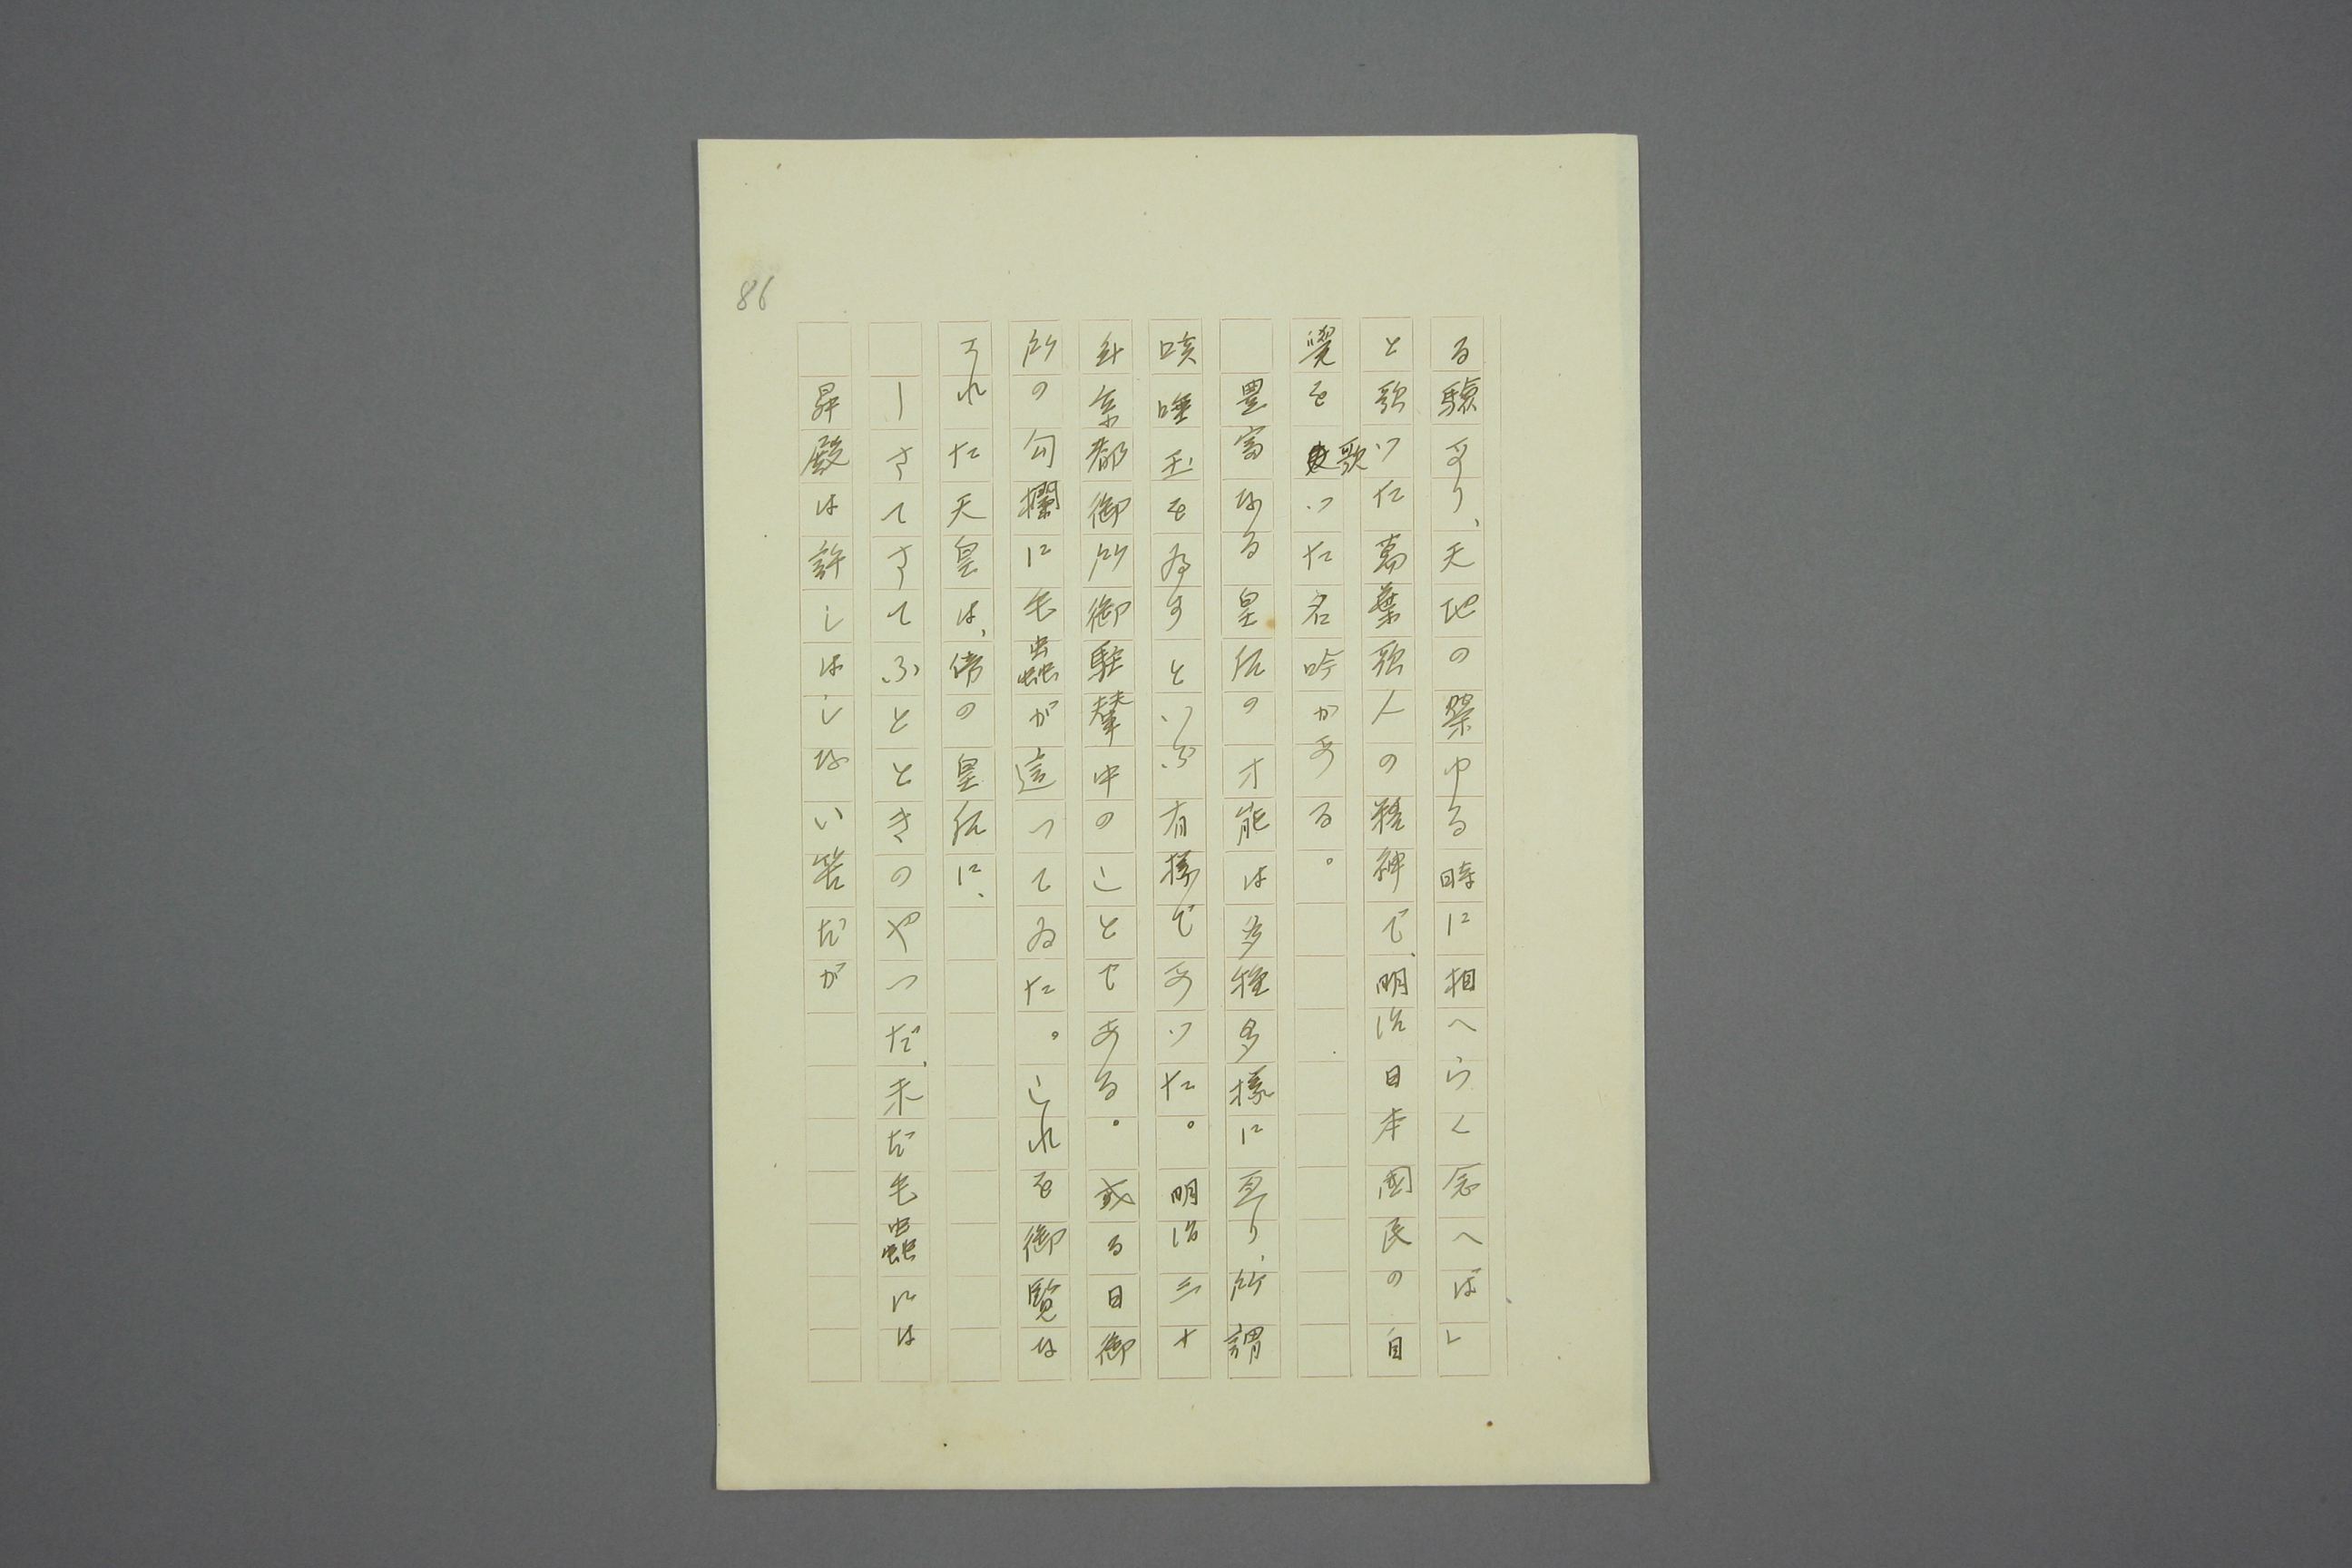 86
る驗あり、天地の榮ゆる時に相へらく念へば」
と歌つた萬葉歌人の精神で、明治日本國民の自
覺を歌つた名吟がある。
豊富なる皇后の才能は多種多様に亙り、所謂
咳唾玉を為すといふ有様であつた。明治三十
年京都御所御駐輦中のことである。或る日御
所の勾欄に毛蟲が這つてゐた。これを御覧な
された天皇は、傍の皇后に、
ーさてさてふとときのやつだ、未だ毛蟲には
昇殿は許しはしない筈だが